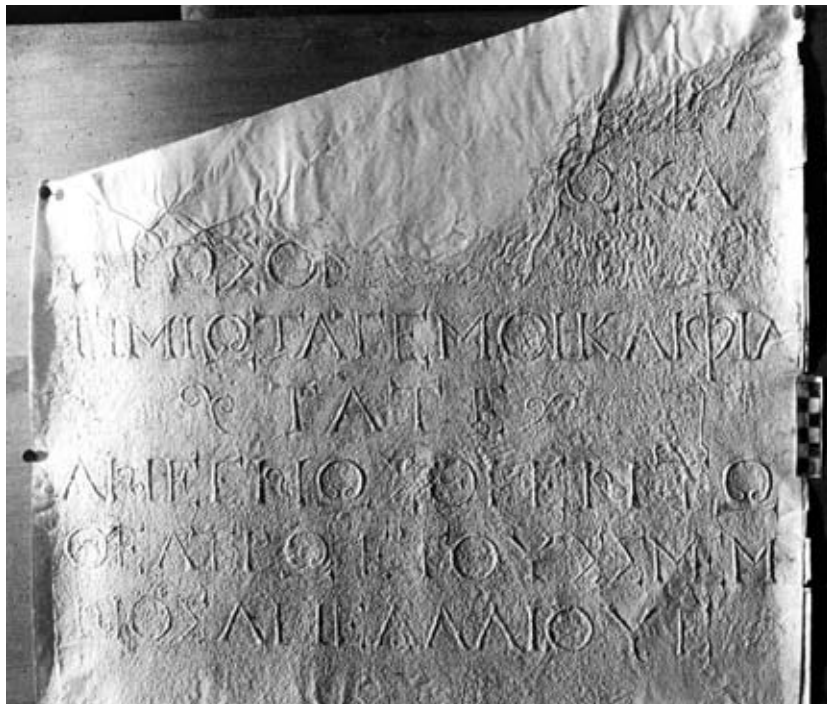 ΩΚΑ
ΡΩΣΟ
ΤΙΜΙΩΤΑΤΕΜΟΙΚΑΙΦΙΛ
ΤΑΤΕ
ΑΝΕΓΝΩΣΘΗΕΝΤΩ
ΘΕΑΤΡΩΕΤΟΥΣΣΜΜ
ΝΟΣΑΠΕΛΛΑΙΟΥ